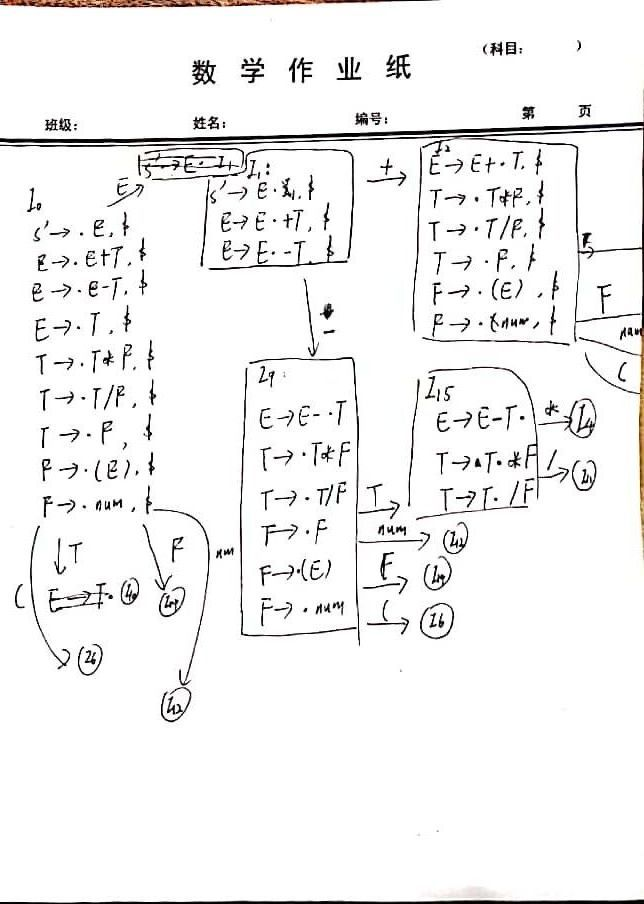 （科目： ）
数 学 作 业 纸
班级： 姓名： 编号： 第 页
I₀
S'→·E, $
E→·E+T, $
E→·E-T, $
E→·T, $
T→·T*F, $
T→·T/F, $
T→·F, $
F→·(E), $
F→·num, $
E
I₁:
S'→E·, $
E→E·+T, $
E→E·-T, $
+
I₂
E→E+·T, $
T→·T*F, $
T→·T/F, $
T→·F, $
F→·(E), $
F→·num, $
F
num
(
-
I₉:
E→E-·T
T→·T*F
T→·T/F
T→·F
F→·(E)
F→·num
T
num I₁₂
F
( I₆
I₁₅
E→E-T·
T→T·*F
T→T·/F
* I₄
/
T
F
num
(
E→T·
I₆
I₁₂